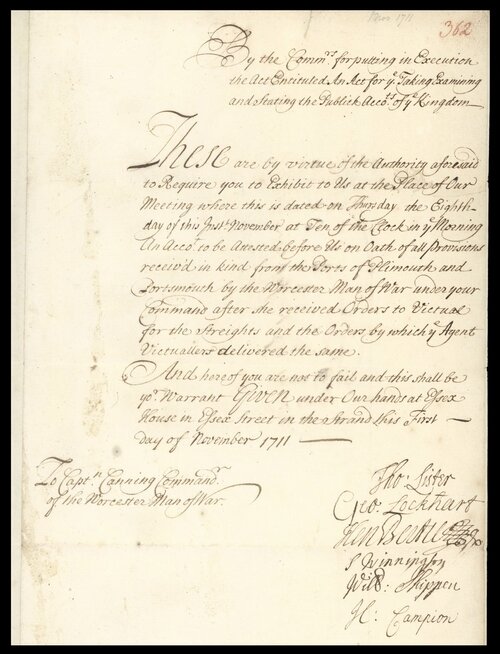 Nov 1711
362
By the Comm.rs for putting in Execution
the Act Entituled An Act for y.e Taking Examining
and Stating the Publick Acco.ts of y.e Kingdom
These are by virtue of the Authority aforesaid
to Require you to Exhibit to Us at the Place of Our
Meeting where this is dated on Thursday the Eighth
day of this Inst.t November at Ten of the Clock in y.e Morning
An Acco.t to be Attested before Us on Oath of all Provisions
receiv'd in kind from the Ports of Plimouth and
Portsmouth by the Worcester Man of War under your
Command after she received Orders to Victual
for the Streights and the Orders by which y.e Agent
Victuallers delivered the same.
And hereof you are not to fail and this shall be
yo.r Warrant Given under Our hands at Essex
House in Essex Street in the Strand this First
day of November 1711
To Capt.n Canning Command.r
of the Worcester Man of War.
Tho: Lister
Geo: Lockhart
Hen Bertie
S Winnington
Will: Shippen
H: Campion